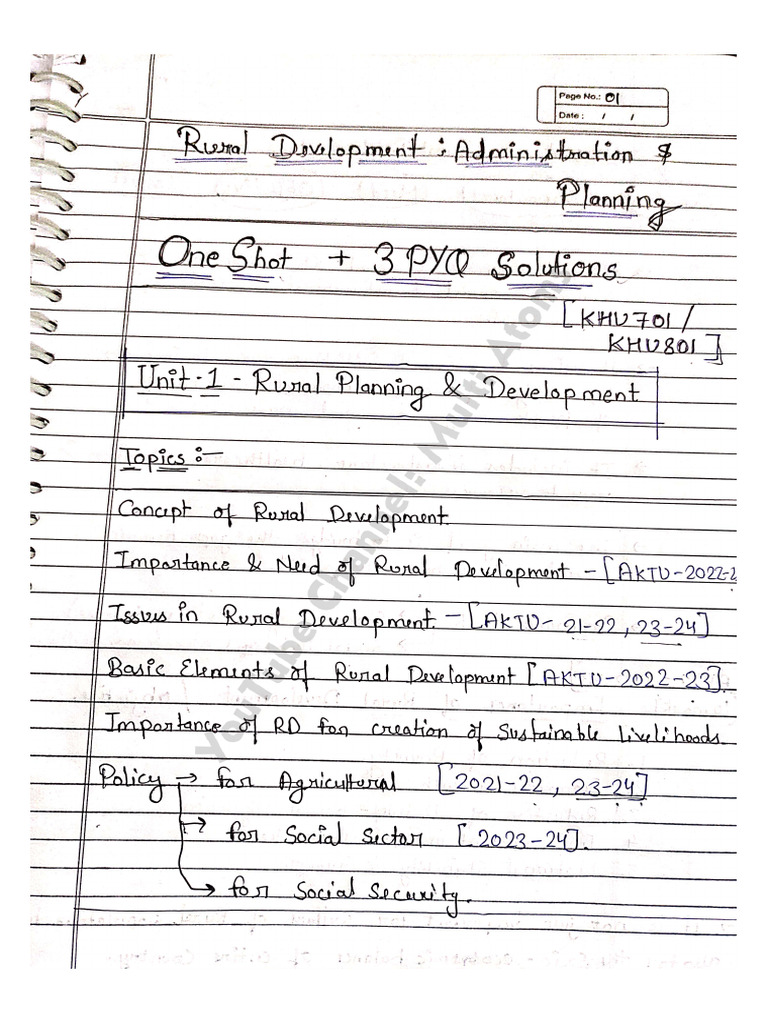 Page No.: 01
Date: / /
Rural Development : Administration &
Planning
One Shot + 3 PYQ Solutions
[KHU701/
KHU801]
Unit-1 - Rural Planning & Development
Topics :-
Concept of Rural Development
Importance & Need of Rural Development - [AKTU-2022-2
Issues in Rural Development - [AKTU- 21-22, 23-24]
Basic Elements of Rural Development [AKTU-2022-23].
Importance of RD for creation of Sustainable Livelihoods.
Policy → for Agricultural [2021-22, 23-24]
→ for Social Sector [2023-24].
→ for Social Security.
YouTube Channel: Multi Atoms